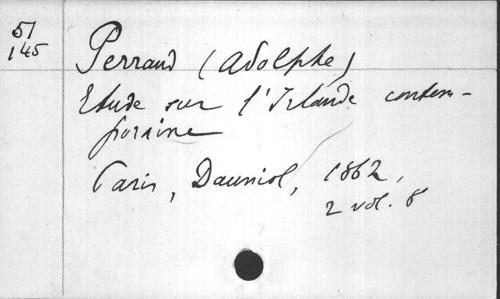 51
145
Perraud (Adolphe)
Etude sur l'Irlande contem-
poraine
Paris, Douniol, 1862,
2 vol. 8